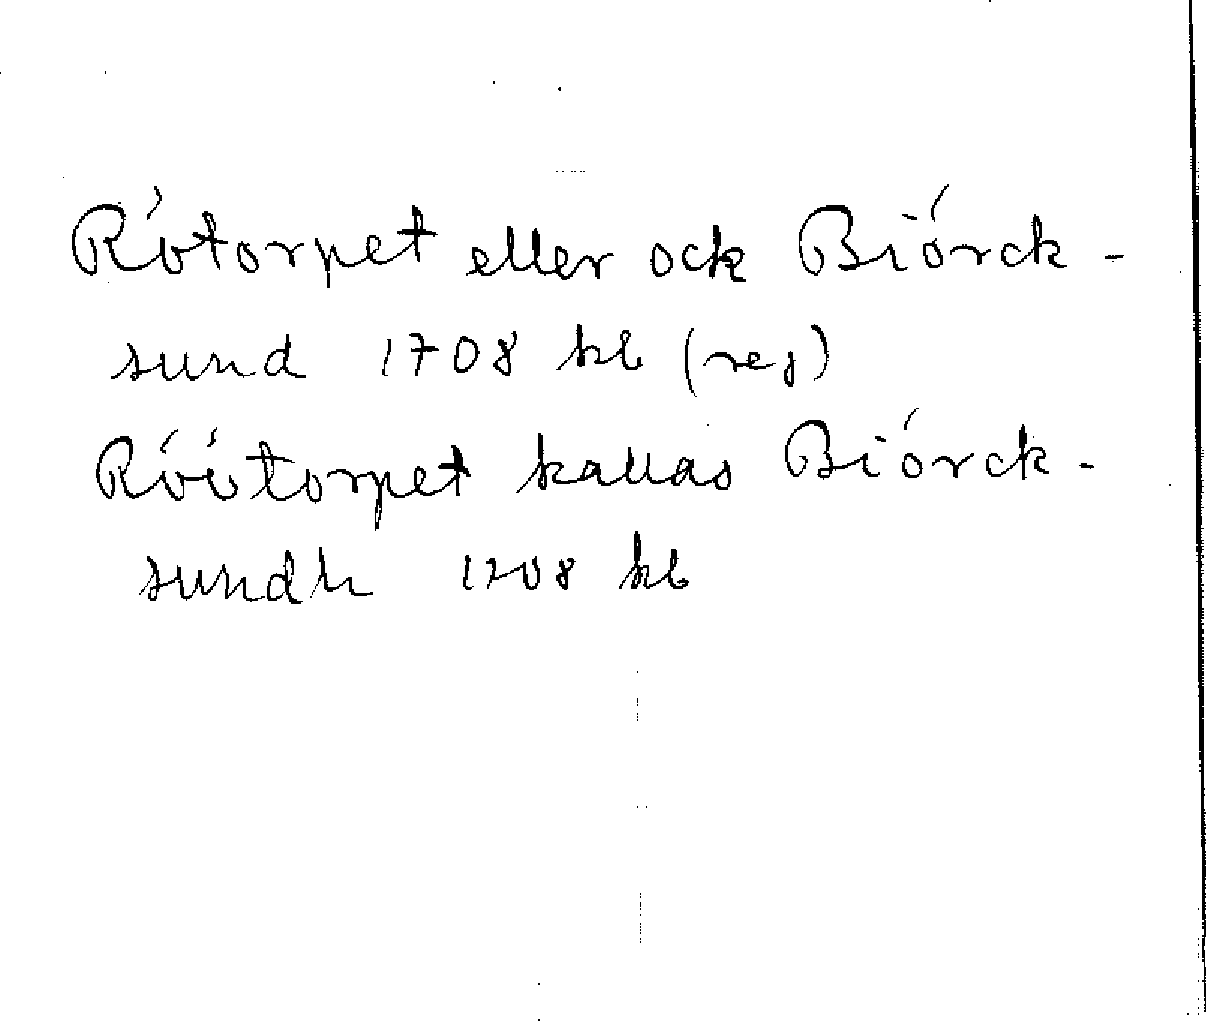 Rötorpet eller ock Biörck-
sund 1708 kb (reg)
Röötorpet kallas Biörck-
sundh 1708 kb